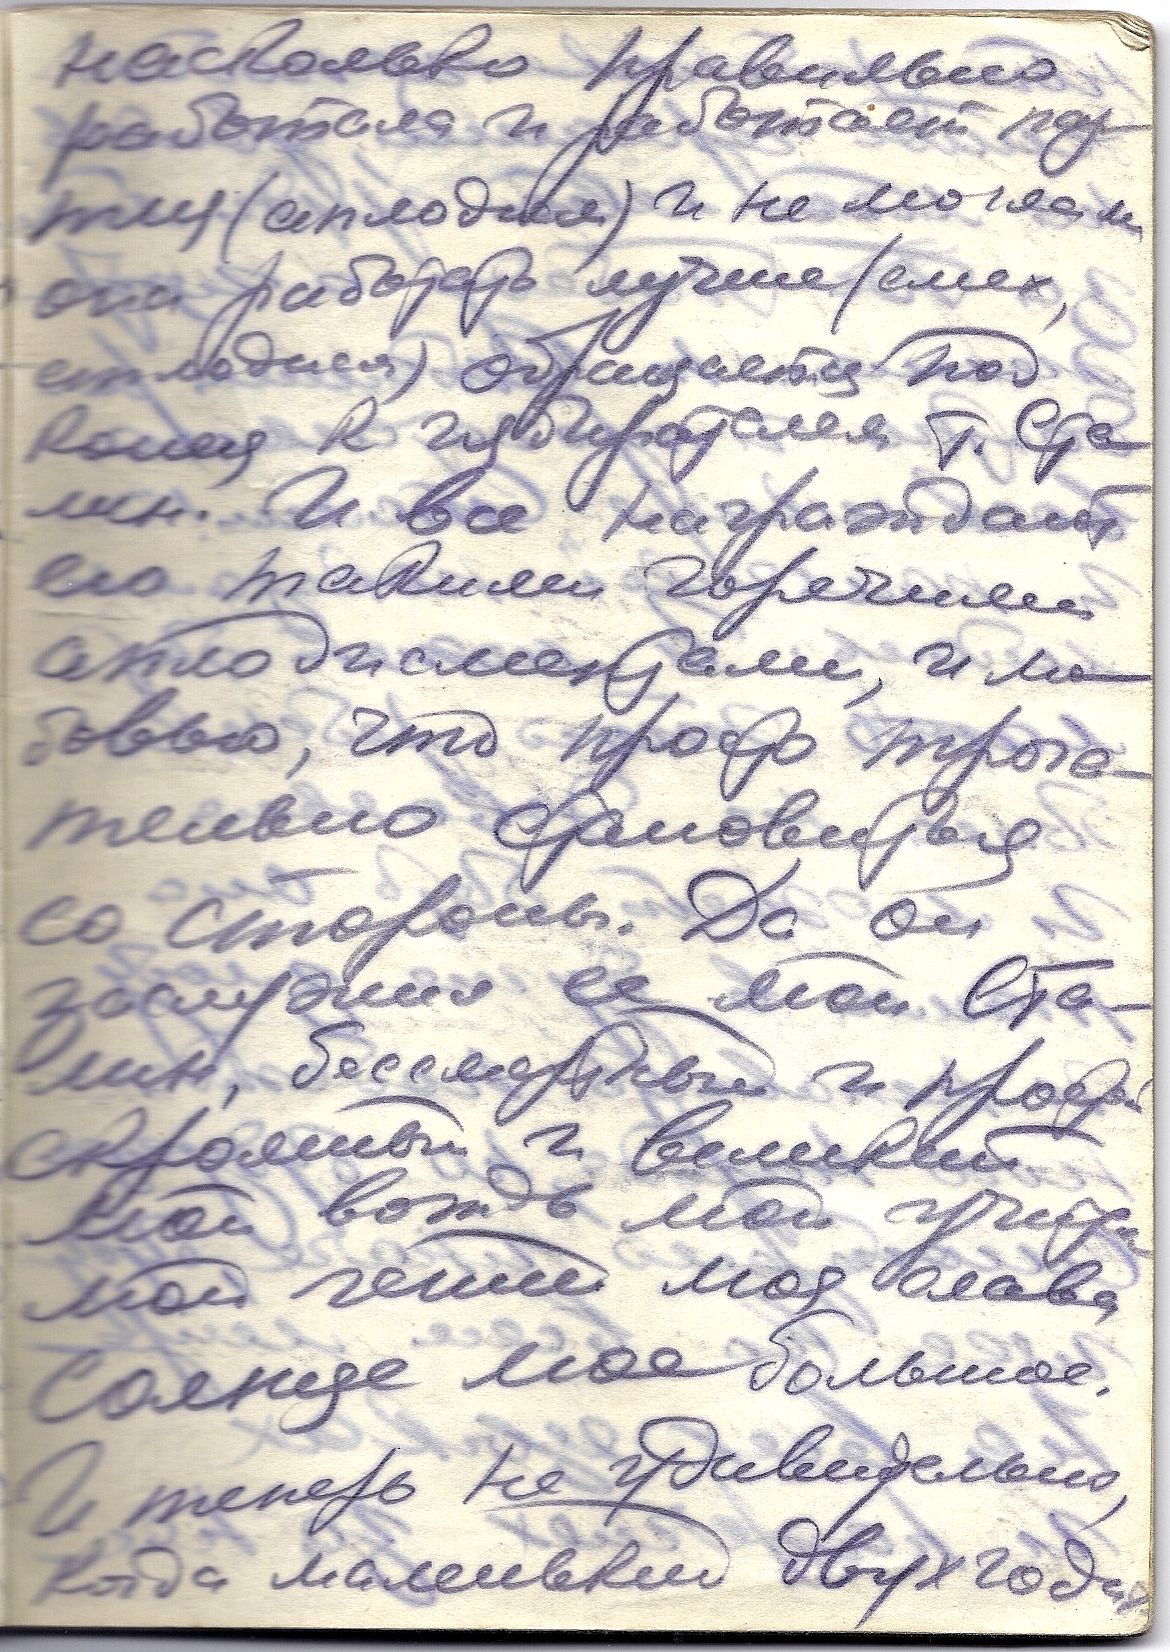 насколько правильно
работала и работает пар-
тия (аплодисм) и не могла ли
она работать лучше (смех,
аплодисм) обращается под
конец к избирателям т. Ста-
лин. И все награждают
его такими горячими
аплодисментами, и лю-
бовью, что просто трога-
тельно становиться
со стороны. Да он
заслужил ее мой Ста-
лин, бессмертный и простой
скромный и великий
мой вождь мой учитель
мой гений моя слава
солнце мое большое.
И теперь не удивительно,
когда маленький двухгодич